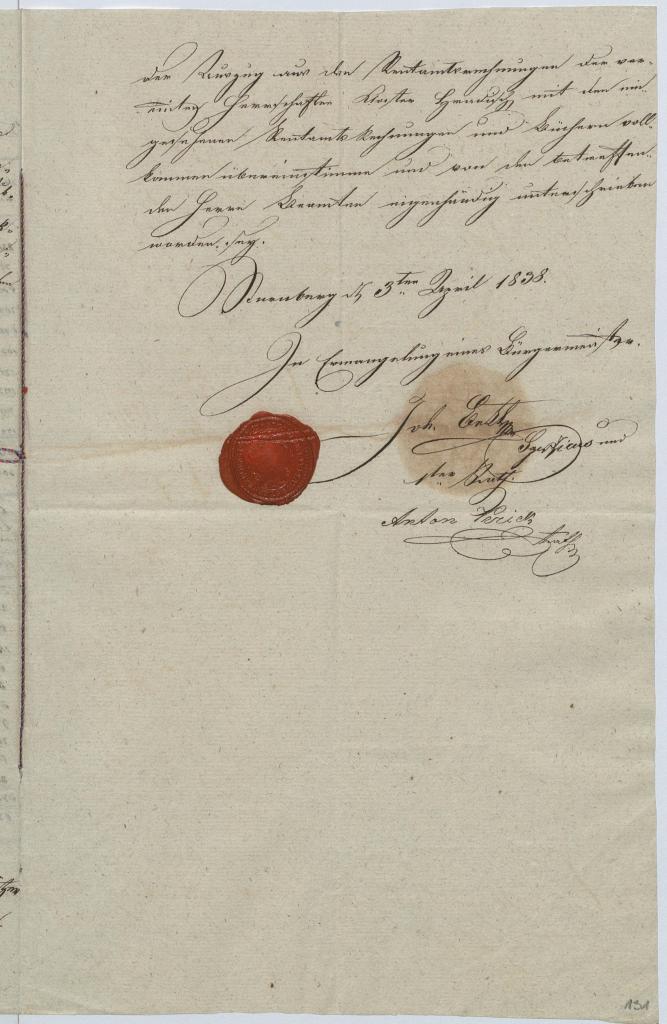 der Auszug aus den Rentamtsrechnungen der ver-
einten Herrschaften Kloster Hradisch mit den ein-
gesehenen Rentamts Rechnungen und Büchern voll-
kommen übereinstimme und von den betreffen-
den Herrn Beamten eigenhändig unterschrieben
worden sey.
Sternberg d 3ten April 1838.
In Ermangelung eines Bürgermeisters.
Joh.
und
1ter Rath
Anton
Rath
131